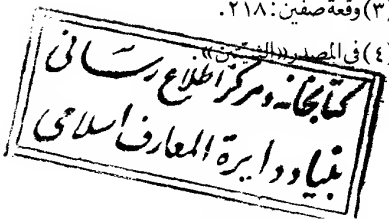 (٣) وقعة صفين: ٢١٨.
(٤) في المصدر «
كتابخانه ومركز اطلاع رسانی
بنیاد دایرة المعارف اسلامی